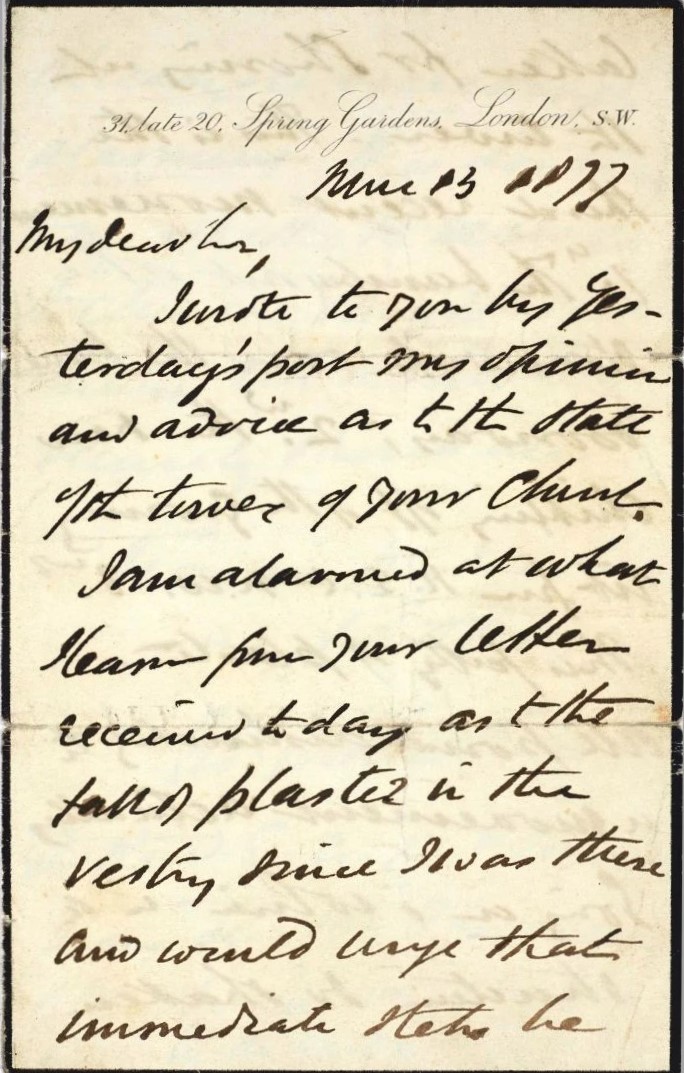 31, late 20, Spring Gardens, London, S.W.
13 1877
My dear Sir,
I wrote to you by yes-
terday's post my opinion
and advice as to the state
of the tower of your Church.
I am alarmed at what
I learn from your letter
received today as to the
fall of plaster in the
vestry since I was there
and would urge that
immediate steps be